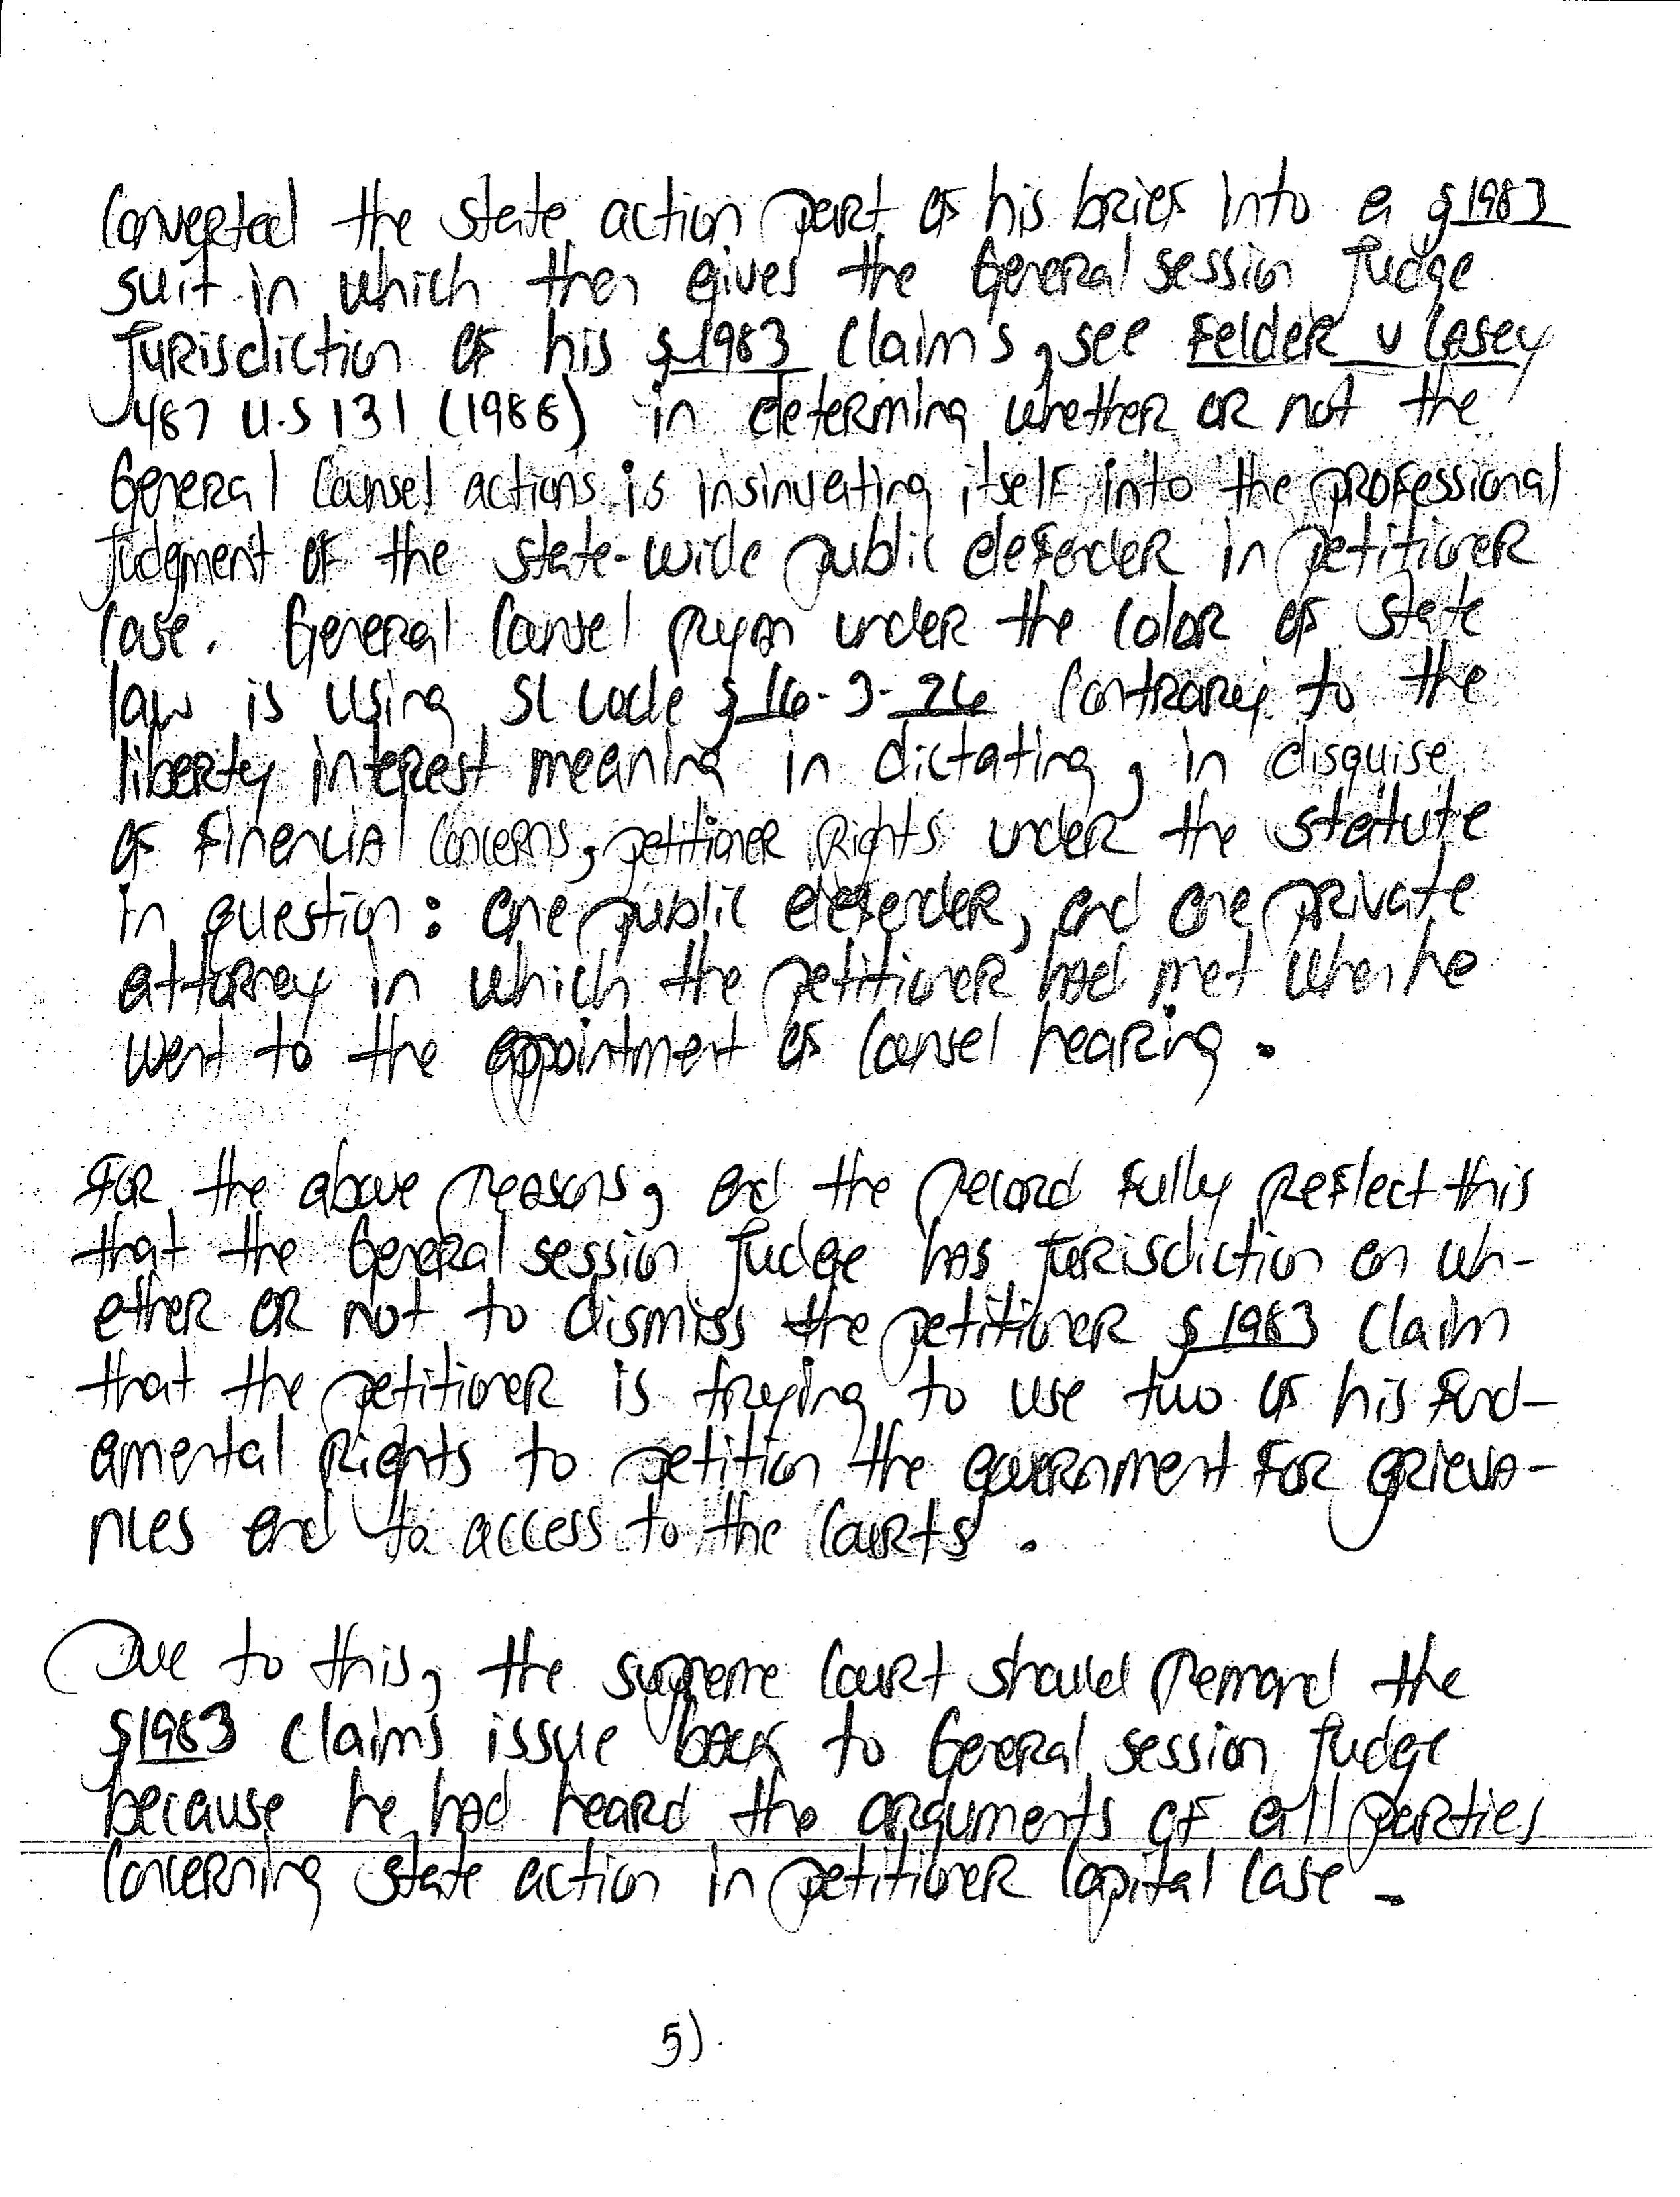 Converted the state action part of his brief into a § 1983
suit in which then gives the General session Judge
Jurisdiction of his § 1983 claims, see Felder v Casey
487 U.S 131 (1988) in determing whether or not the
General Counsel actions is insinuating itself into the professional
Judgment of the state-wide public defender in petitioner
case. General Counsel Ryan under the color of state
law is using SC Code § 16-3-26 contrary to the
liberty interest meaning in dictating, in disquise
of Financial concerns, petitioner Rights under the statute
in question: one public defender, and one private
attorney in which the petitioner had met when he
went to the appointment of counsel hearing.
For the above reasons, and the record fully reflect this
that the General session Judge has Jurisdiction on wh-
ether or not to dismiss the petitioner § 1983 claim
that the petitioner is trying to use two of his fund-
amental Rights to petition the government for grieva-
nces and to access to the courts.
Due to this, the supreme court should remand the
§1983 claims issue back to General session Judge
because he had heard the arguments of all parties
concerning state action in petitioner capital case.
5).